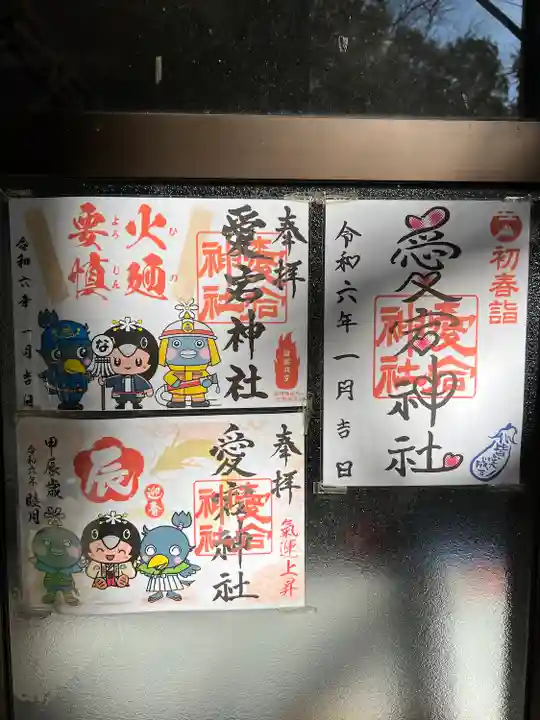 奉拝
愛宕神社
火廼
ひの
要慎
よろじん
令和六年 一月 吉日
な
奉拝
愛宕神社
氣運上昇
辰
迎春
甲辰歳
令和六年 睦月
初春詣
愛宕神社
令和六年 一月 吉日